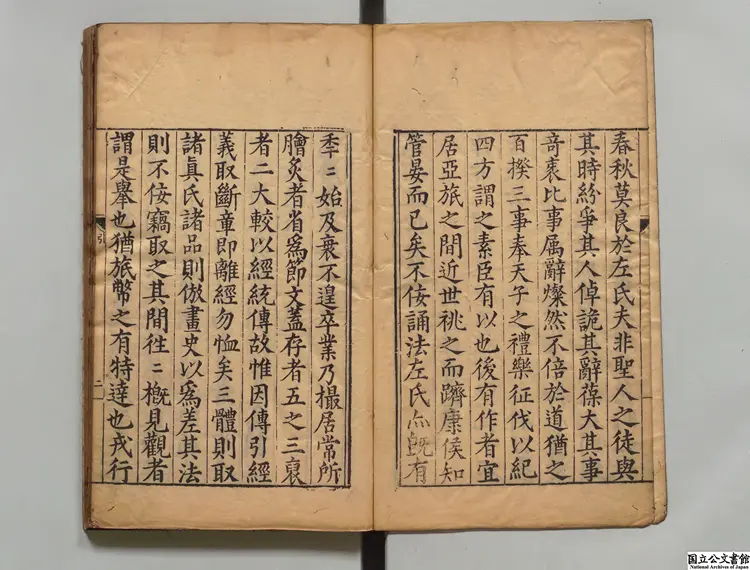 春秋莫良於左氏夫非聖人之徒與
其時紛爭其人倬詭其辭葆大其事
竒衺比事属辭燦然不倍於道猶之
百揆三事奉天子之禮樂征伐以紀
四方謂之素臣有以也後有作者宜
居亞旅之間近世祧之而躋康侯知
管晏而已矣不佞誦法左氏亦旣有
秊〻始及衰不遑卒業乃撮居常所
膾炙者省爲節文蓋存者五之三裒
者二大較以經統傳故惟因傳引經
義取斷章即離經勿恤矣三體則取
諸眞氏諸品則倣畫史以爲差其法
則不佞竊取之其間徃〻槪見觀者
謂是舉也猶旅幣之有特達也戎行
引
二
国立公文書館
National Archives of Japan